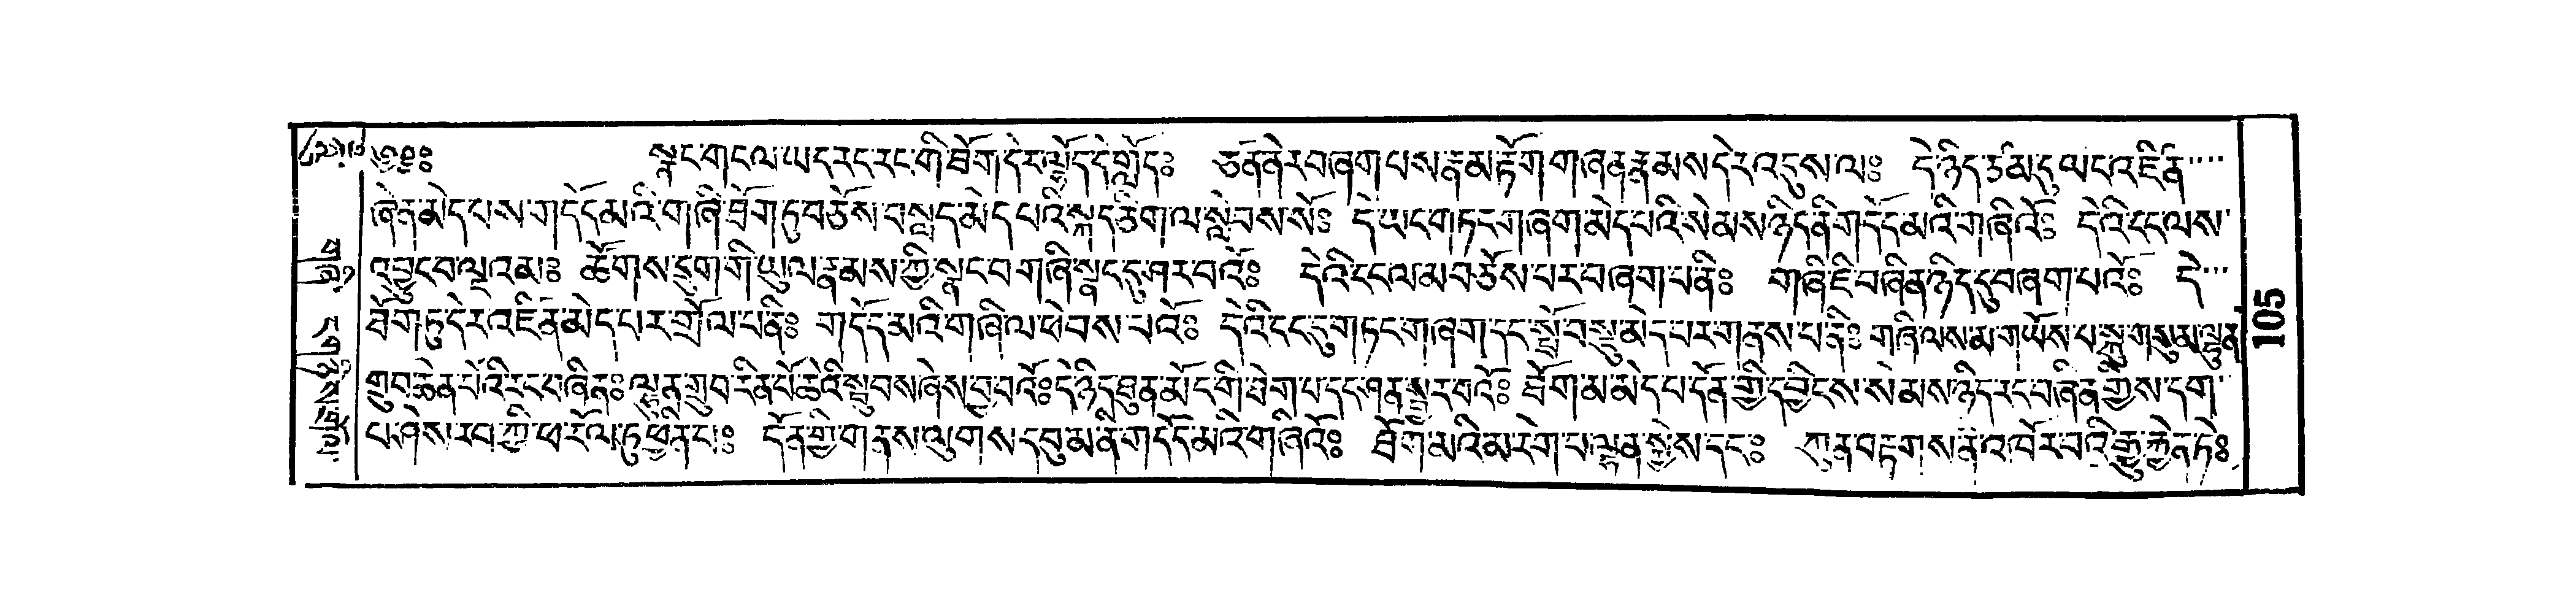 ༄༅༔ སྣང་གང་ལ་ཡང་རང་རང་གི་ཐོག་དེར་ལྷོད་དེ་གློད༔ ཅན་ནེར་བཞག་པས་རྣམ་རྟོག་གཞན་རྣམས་དེར་འདུས་ལ༔ དེ་ཉིད་ངམིདུ་ཡང་འཛིན་
ཞེན་མེད་པས་གདོད་མའི་གཞི་ཐོག་ཏུ་བཅོས་བསླད་མེད་པའི་སྐད་ཅིག་ལ་སླེབས་སོ༔ དེ་ཡང་གཏང་གཞག་མེད་པའི་སེམས་ཉིད་ནི་གདོད་མའི་གཞིའོ༔ དེའི་ངང་ལས་
འབྱུང་བལྔ་འམ༔ ཚོགས་དྲུག་གི་ཡུལ་རྣམས་ཀྱི་སྣང་བ་གཞི་སྣང་དུ་ཤར་བའོ༔ དེའི་ངང་ལ་མ་བཅོས་པར་བཞག་པ་ནི༔ གཞི་ཇི་བཞིན་ཉིད་དུ་བཞག་པའོ༔ དེ་
ཐོག་ཏུ་དེར་འཛིན་མེད་པར་གྲོལ་པ་ནི༔ གདོད་མའི་གཞི་ལ་ཕེབས་པའོ༔ དེའི་ངང་དུ་གཏང་གཞག་དང་སྤྲོ་བསྡུ་མེད་པར་གནས་པ་ནི༔ གཞི་ལས་མ་གཡོས་པ་སྐུ་གསུམ་ལྷུན་
གྲུབ་ཆེན་པོའི་རང་བཞིན༔ ལྷུན་གྲུབ་རིན་པོ་ཆེའི་སྦུབས་ཞེས་བྱ་བའོ༔ དེ་ཉིད་ཐུན་མོང་གི་ཐེག་པ་དང་ཤན་སྦྱར་བའོ༔ ཐོག་མ་མེད་པ་དོན་གྱི་དབྱིངས་སེམས་ཉིད་རང་བཞིན་གྱིས་དག་
པ་ཤེས་རབ་ཀྱི་ཕ་རོལ་ཏུ་ཕྱིན་པ༔ དོན་གྱི་གནས་ལུགས་དབུ་མ་ནི་གདོད་མའི་གཞིའོ༔ ཐོག་མའི་མ་རིག་པ་ལྷན་སྐྱེས་དང༔ ཀུན་བརྟགས་ནི་འཁོར་བའི་རྒྱུ་རྐྱེན་ཏེ༔
105